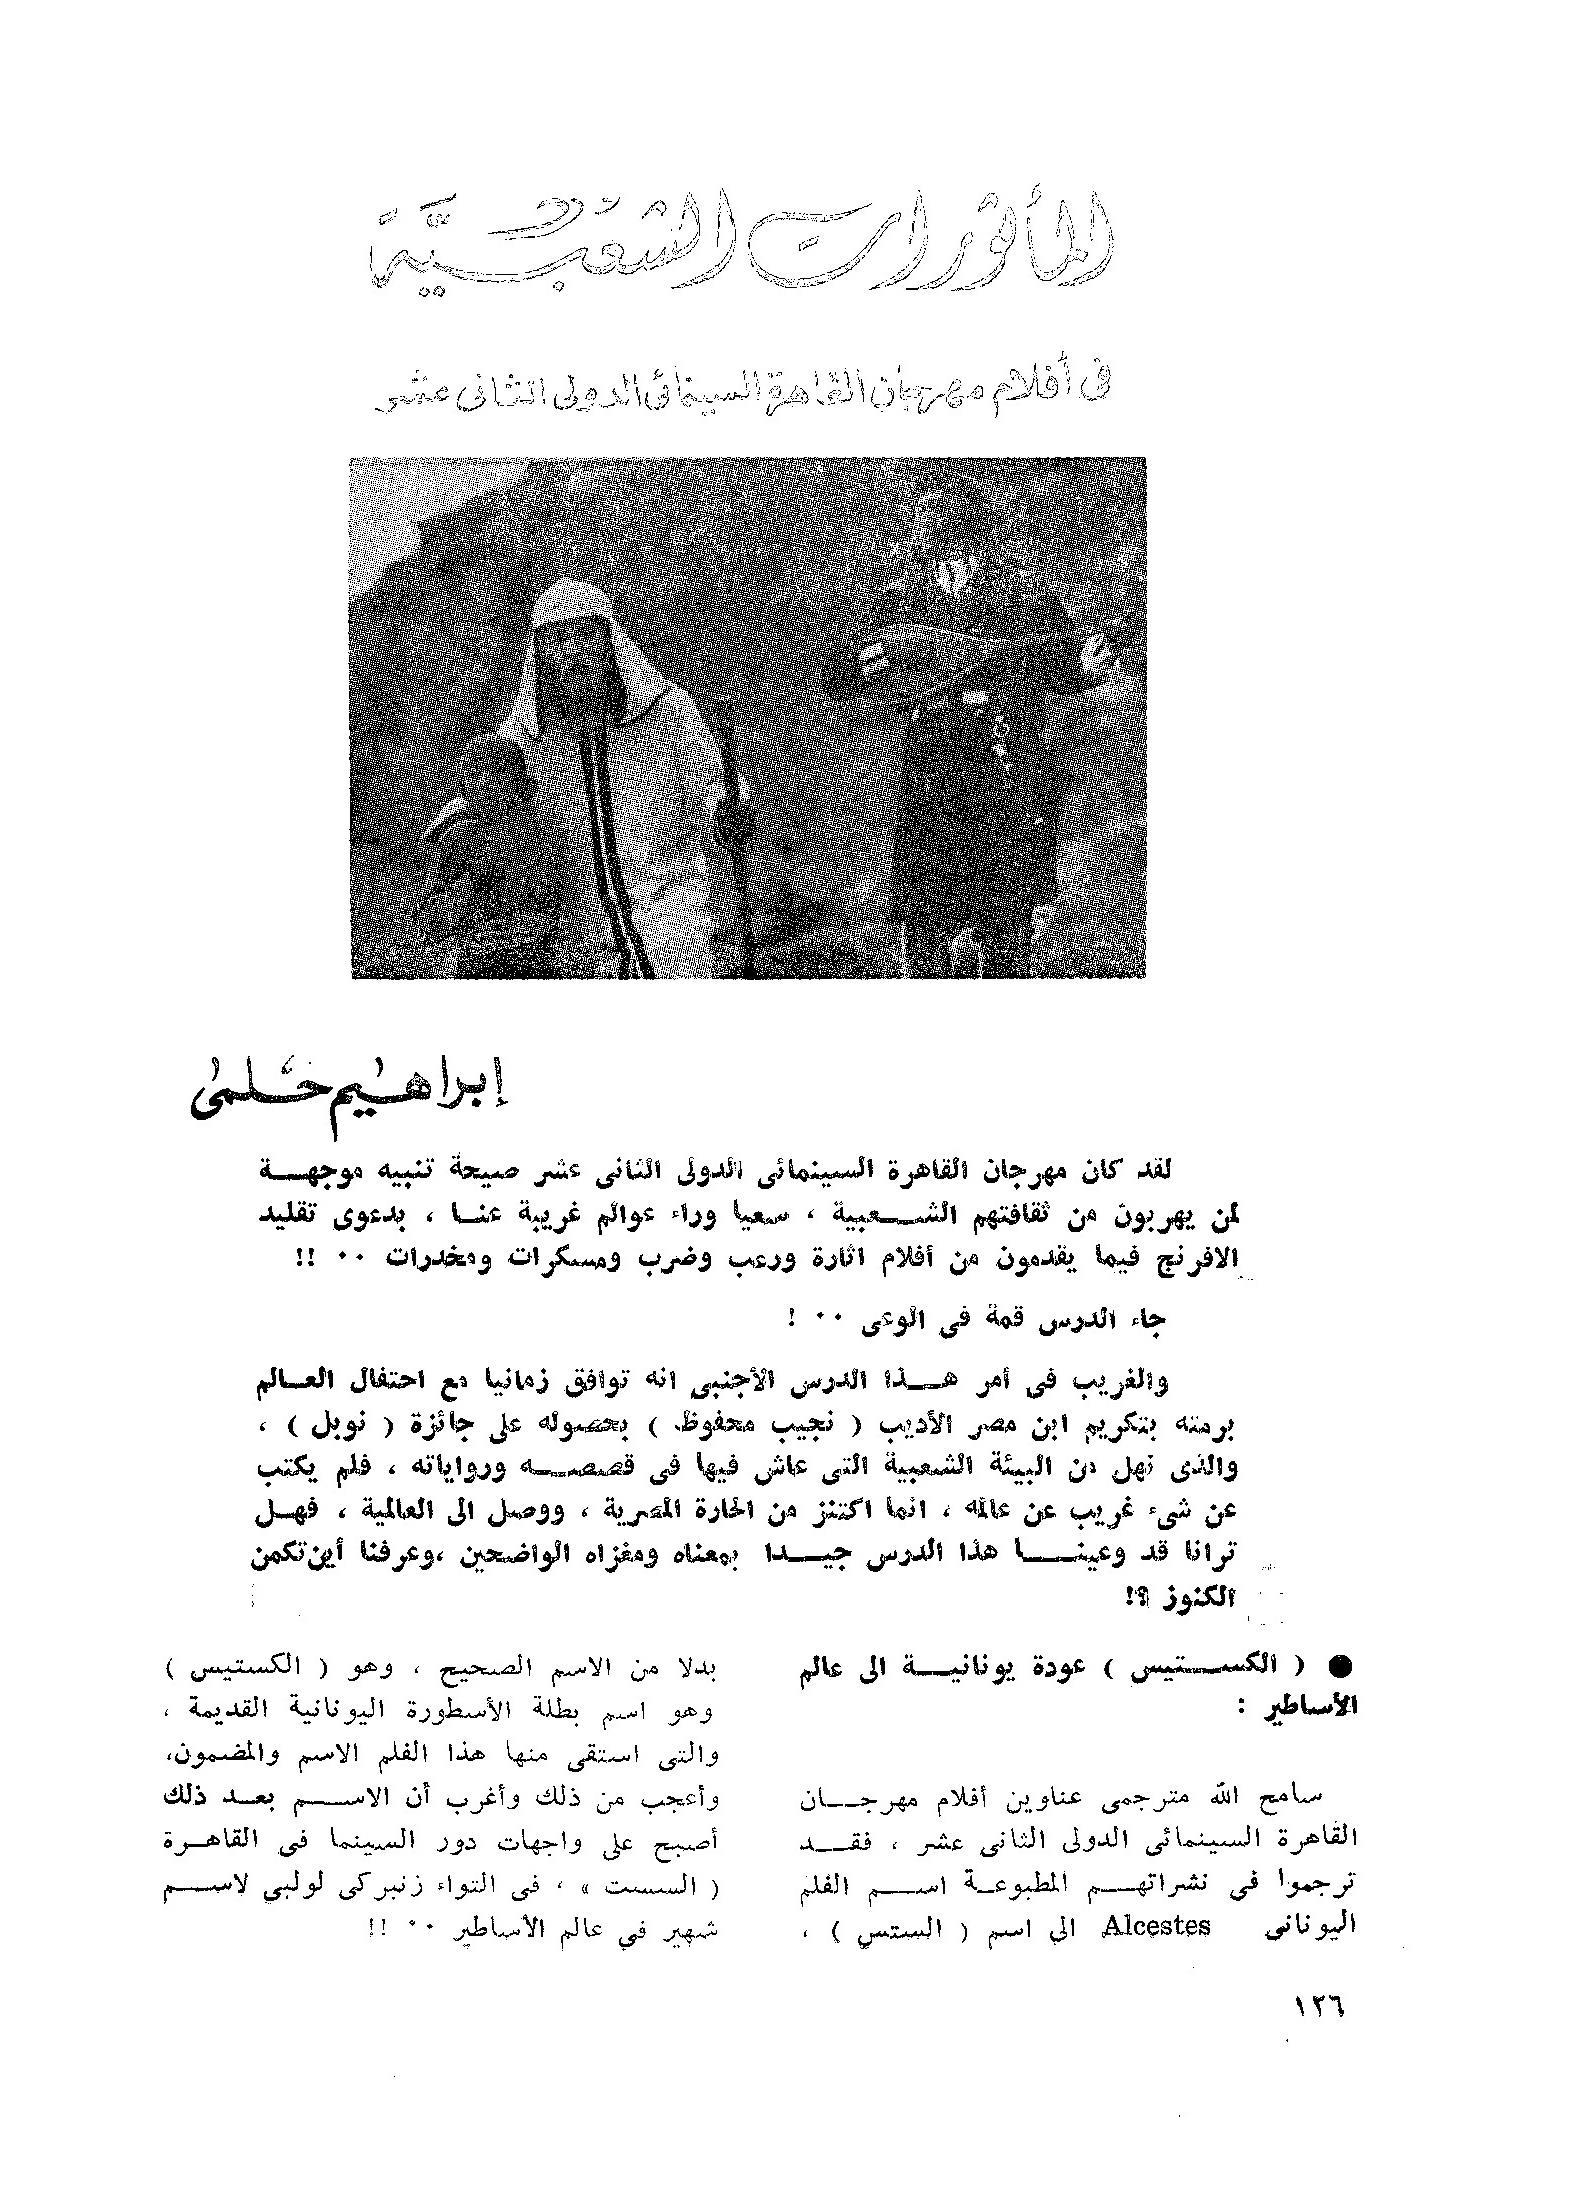 المأثورات الشعبية
فى أفلام مهرجان القاهرة السينمائى الدولى الثانى عشر
إبراهيم حلمى
لقد كان مهرجان القاهرة السينمائى الدولى الثانى عشر صيحة تنبيه موجهة
لمن يهربون من ثقافتهم الشعبية ، سعيا وراء عوالم غريبة عنا ، بدعوى تقليد
الافرنج فيما يقدمون من أفلام اثارة ورعب وضرب ومسكرات ومخدرات ٠٠ !!
جاء الدرس قمة فى الوعى ٠٠ !
والغريب فى أمر هذا الدرس الأجنبى انه توافق زمانيا مع احتفال العالم
برمته بتكريم ابن مصر الأديب ( نجيب محفوظ ) بحصوله على جائزة ( نوبل ) ،
والذى نهل من البيئة الشعبية التى عاش فيها فى قصصه ورواياته ، فلم يكتب
عن شىء غريب عن عالمه ، انما اكتنز من الحارة المصرية ، ووصل الى العالمية ، فهل
ترانا قد وعينا هذا الدرس جيدا بمعناه ومغزاه الواضحين ،وعرفنا أين تكمن
الكنوز ؟!
● ( الكستيس ) عودة يونانية الى عالم
الأساطير :
سامح الله مترجمى عناوين أفلام مهرجان
القاهرة السينمائى الدولى الثانى عشر ، فقد
ترجموا فى نشراتهم المطبوعة اسم الفلم
اليونانى Alcestes الى اسم ( الستس ) ،
بدلا من الاسم الصحيح ، وهو ( الكستيس )
وهو اسم بطلة الأسطورة اليونانية القديمة ،
والتى استقى منها هذا الفلم الاسم والمضمون،
وأعجب من ذلك وأغرب أن الاسم بعد ذلك
أصبح على واجهات دور السينما فى القاهرة
( السست » ، فى التواء زنبركى لولبى لاسم
شهير في عالم الأساطير ٠٠ !!
١٢٦